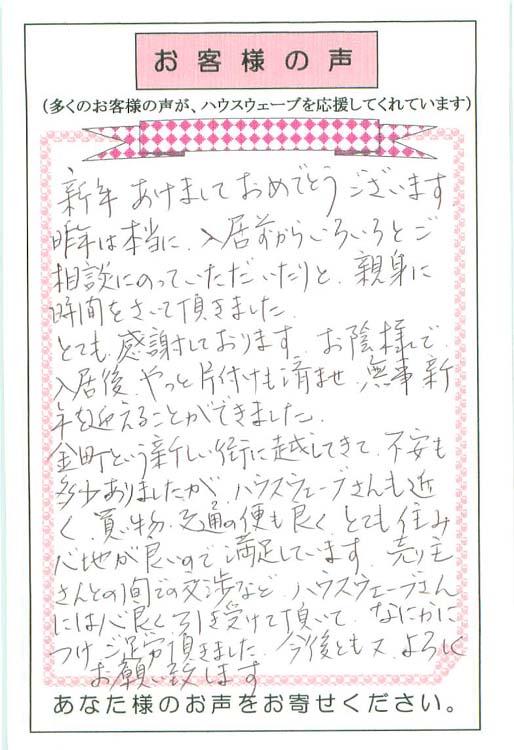 お客様の声
(多くのお客様の声が、ハウスウェーブを応援してくれています)
新年 あけましておめでとうございます。
昨年は本当に、入居前からいろいろとご
相談にのっていただいたりと、親身に
時間をさいて頂きました。
とても感謝しております。お陰様で
入居後、やっと片付けも済ませ、無事新
年を迎えることができました。
金町という新しい街に越してきて、不安も
多少ありましたが、ハウスウェーブさんも近
く、買い物、交通の便も良く、とても住み
心地が良いので満足しています。売り主
さんとの間での交渉など、ハウスウェーブさん
には心良く引き受けて頂いて、なにかに
つけ、ご尽力頂きました。今後とも又、よろしく
お願い致します
あなた様のお声をお寄せください。